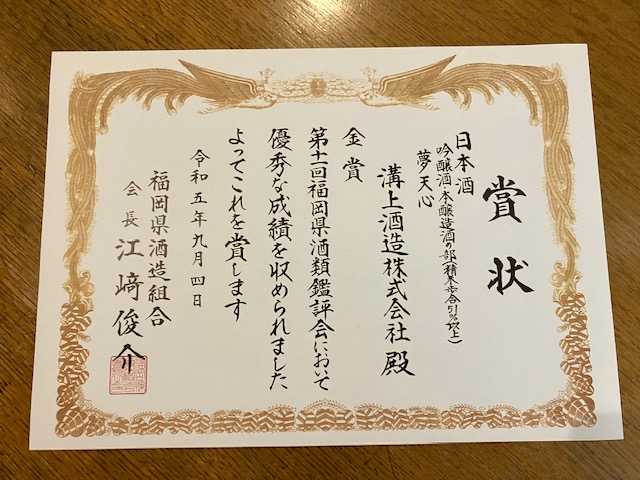 賞状
日本酒
吟醸酒・本醸造酒の部(精米歩合51%以上)
夢天心
溝上酒造株式会社殿
金賞
第十一回福岡県酒類鑑評会において
優秀な成績を収められました
よってこれを賞します
令和五年九月四日
福岡県酒造組合
会長 江﨑俊介